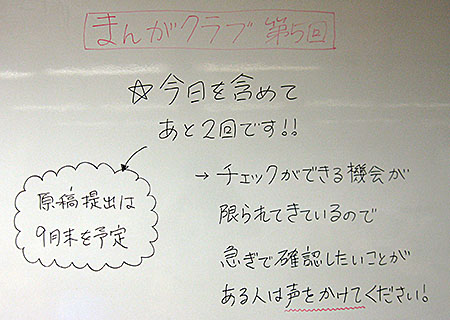 まんがクラブ 第5回
☆今日を含めて
あと2回です!!
原稿提出は
9月末を予定
→ チェックができる機会が
限られてきているので
急ぎで確認したいことが
ある人は声をかけてください!